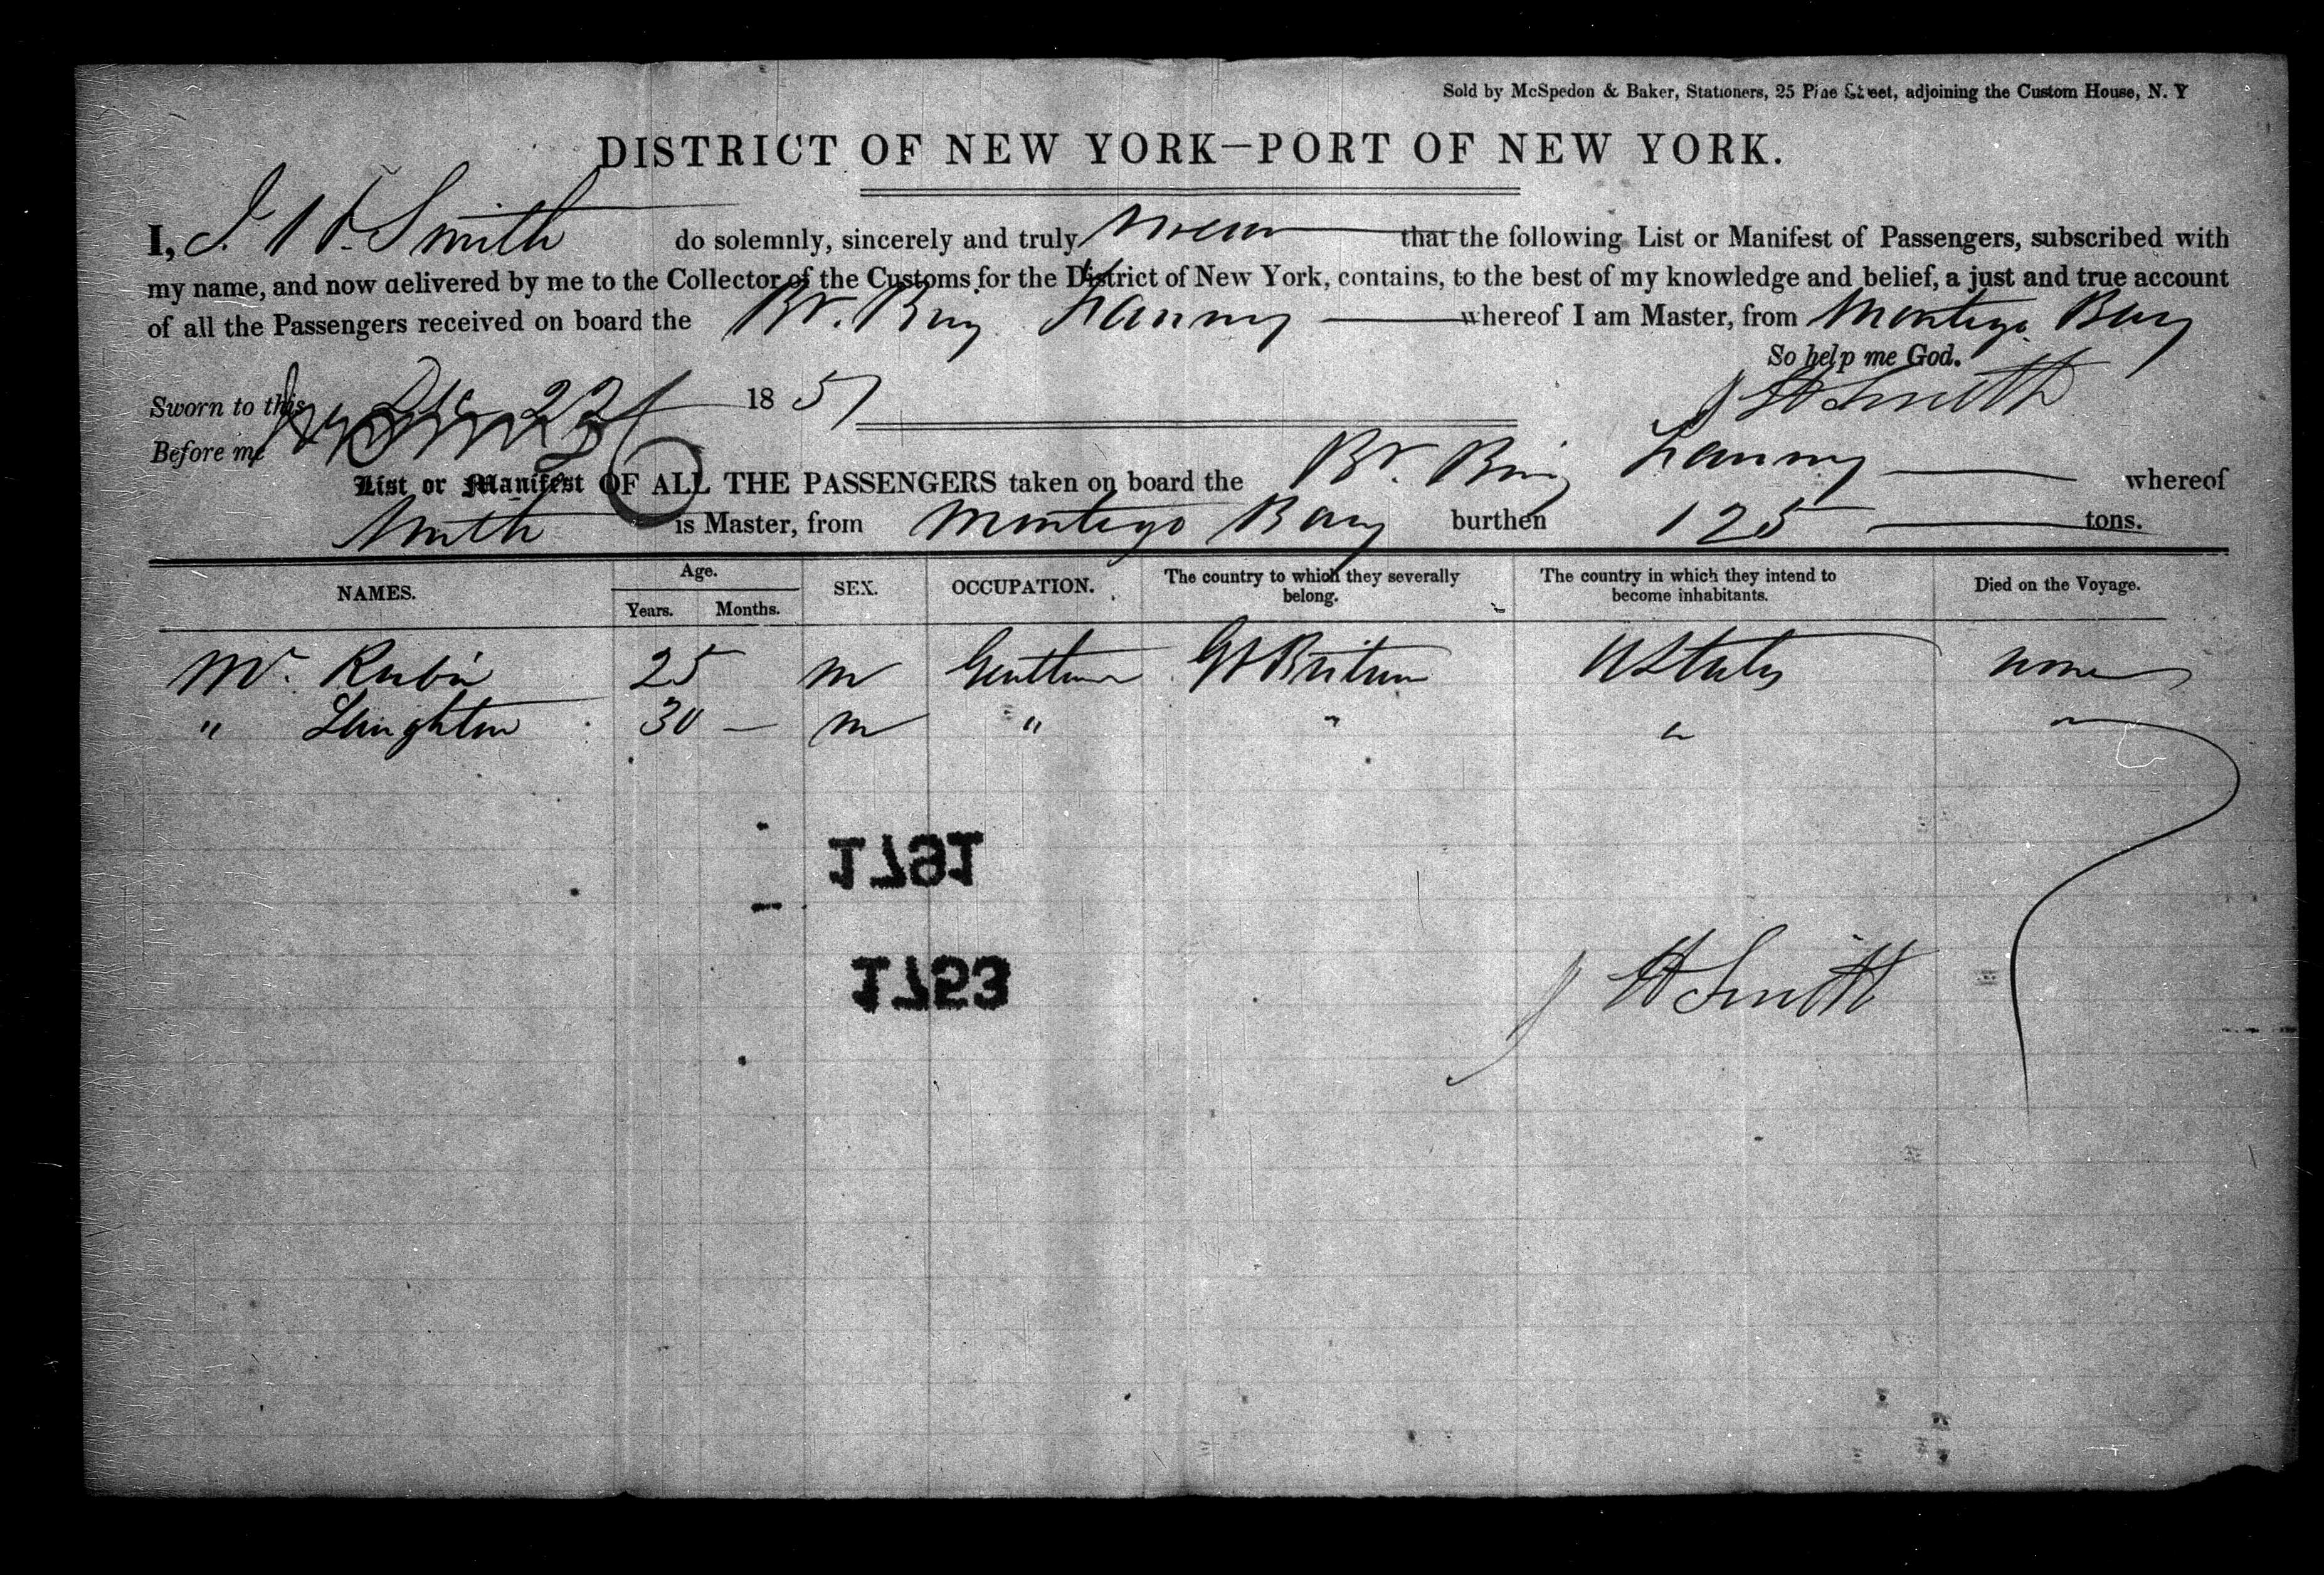 Sold by McSpedon & Baker, Stationers, 25 Pine Street, adjoining the Custom House, N. Y
DISTRICT OF NEW YORK—PORT OF NEW YORK.
I, J. H. Smith do solemnly, sincerely and truly swear that the following List or Manifest of Passengers, subscribed with
my name, and now delivered by me to the Collector of the Customs for the District of New York, contains, to the best of my knowledge and belief, a just and true account
of all the Passengers received on board the Br. Brig whereof I am Master, from Montego Bay
So help me God.
Sworn to this 22 1851 J H Smith
Before me
List or Manifest OF ALL THE PASSENGERS taken on board the Br. Brig whereof
Smith is Master, from Montego Bay burthen 125 tons.
NAMES. Age. Years. Months. SEX. OCCUPATION. The country to which they severally belong. The country in which they intend to become inhabitants. Died on the Voyage.
Mr. 25 m Gentleman Gt Britain U States none
" 30 — m " " " "
1791
1753
J H Smith